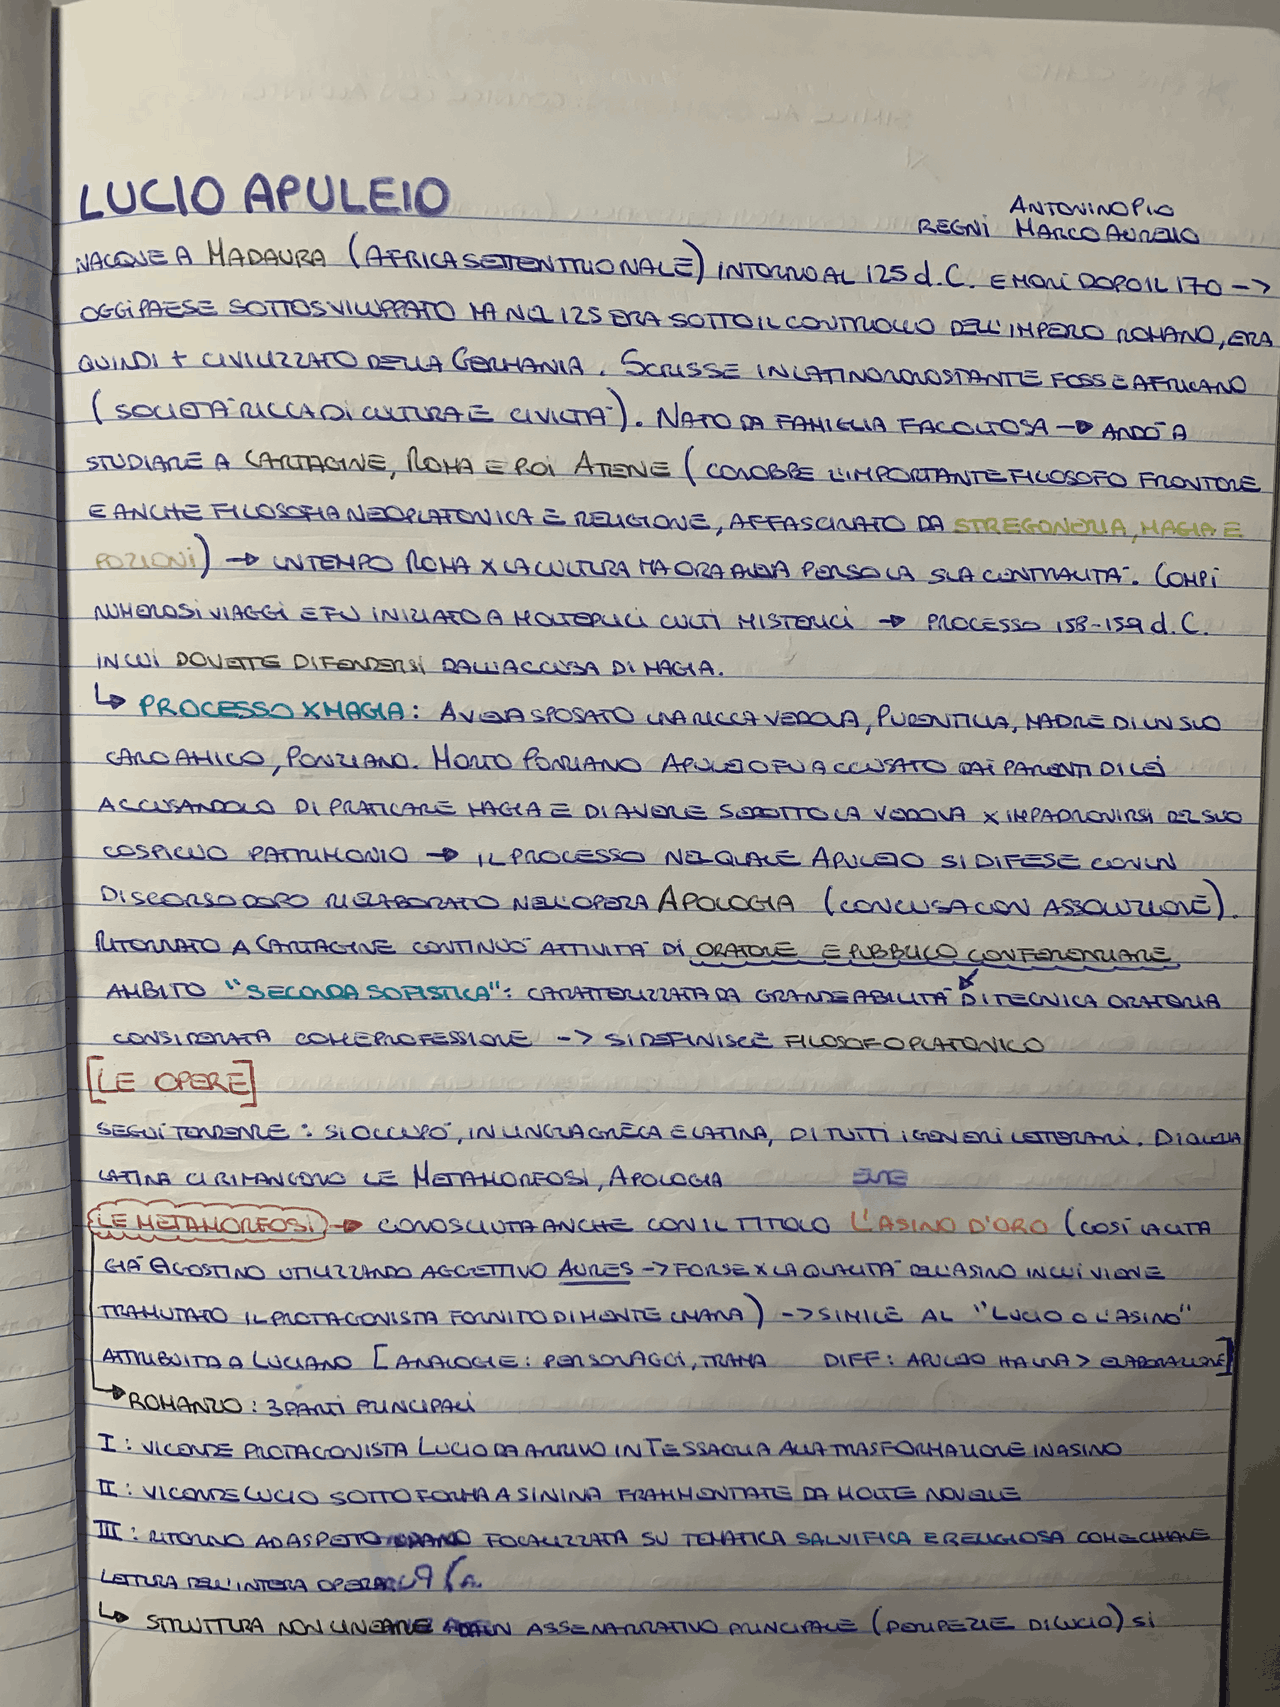 LUCIO APULEIO
ANTONINO PIO
REGNI MARCO AURELIO
NACQUE A MADAURA (AFRICA SETTENTRIONALE) INTORNO AL 125 d.C. E MORÌ DOPO IL 170 ->
OGGI PAESE SOTTOSVILUPPATO MA NEL 125 ERA SOTTO IL CONTROLLO DELL'IMPERO ROMANO, ERA
QUINDI + CIVILIZZATO DELLA GERMANIA. SCRISSE IN LATINO NONOSTANTE FOSSE AFRICANO
(SOCIETÀ RICCA DI CULTURA E CIVILTÀ). NATO DA FAMIGLIA FACOLTOSA -> ANDÒ A
STUDIARE A CARTAGINE, ROMA E POI ATENE (CONOBBE L'IMPORTANTE FILOSOFO FRONTONE
E ANCHE FILOSOFIA NEOPLATONICA E RELIGIONE, AFFASCINATO DA STREGONERIA, MAGIA E
POZIONI) -> UN TEMPO ROMA X LA CULTURA MA ORA AVEVA PERSO LA SUA CENTRALITÀ. COMPÌ
NUMEROSI VIAGGI E FU INIZIATO A MOLTEPLICI CULTI MISTERICI -> PROCESSO 158-159 d.C.
IN CUI DOVETTE DIFENDERSI DALL'ACCUSA DI MAGIA.
↳ PROCESSO X MAGIA: AVEVA SPOSATO UNA RICCA VEDOVA, PUDENTILLA, MADRE DI UN SUO
CARO AMICO, PONZIANO. MORTO PONZIANO APULEIO FU ACCUSATO DAI PARENTI DI LEI
ACCUSANDOLO DI PRATICARE MAGIA E DI AVERE SEDOTTO LA VEDOVA X IMPADRONIRSI DEL SUO
COSPICUO PATRIMONIO -> IL PROCESSO NEL QUALE APULEIO SI DIFESE CON UN
DISCORSO DOPO RIELABORATO NELL'OPERA APOLOGIA (CONCLUSA CON ASSOLUZIONE).
RITORNATO A CARTAGINE CONTINUÒ ATTIVITÀ DI ORATORE E PUBBLICO CONFERENZIARE
AMBITO "SECONDA SOFISTICA": CARATTERIZZATA DA GRANDE ABILITÀ DI TECNICA ORATORIA
CONSIDERATA COME PROFESSIONE -> SI DEFINISCE FILOSOFO PLATONICO
[LE OPERE]
SEGUÌ TENDENZE: SI OCCUPÒ, IN LINGUA GRECA E LATINA, DI TUTTI I GENERI LETTERARI. DI QUELLA
LATINA CI RIMANGONO LE METAMORFOSI, APOLOGIA
LE METAMORFOSI -> CONOSCIUTA ANCHE CON IL TITOLO L'ASINO D'ORO (COSÌ LA CITA
GIÀ AGOSTINO UTILIZZANDO AGGETTIVO AURES -> FORSE X LA QUALITÀ DELL'ASINO IN CUI VIENE
TRAMUTATO IL PROTAGONISTA FORNITO DI MENTE UMANA) -> SIMILE AL "LUCIO O L'ASINO"
ATTRIBUITA A LUCIANO [ANALOGIE: PERSONAGGI, TRAMA DIFF: APULEIO HA UNA > ELABORAZIONE]
↳ ROMANZO: 3 PARTI PRINCIPALI
I: VICENDE PROTAGONISTA LUCIO DA ARRIVO IN TESSAGLIA ALLA TRASFORMAZIONE IN ASINO
II: VICENDE LUCIO SOTTO FORMA ASININA FRAMMENTATE DA MOLTE NOVELLE
III: RITORNO AD ASPETTO UMANO FOCALIZZATA SU TEMATICA SALVIFICA E RELIGIOSA COME CHIAVE
LETTURA DELL'INTERA OPERA
↳ STRUTTURA NON LINEARE UN ASSE NARRATIVO PRINCIPALE (PERIPEZIE DI LUCIO) SI